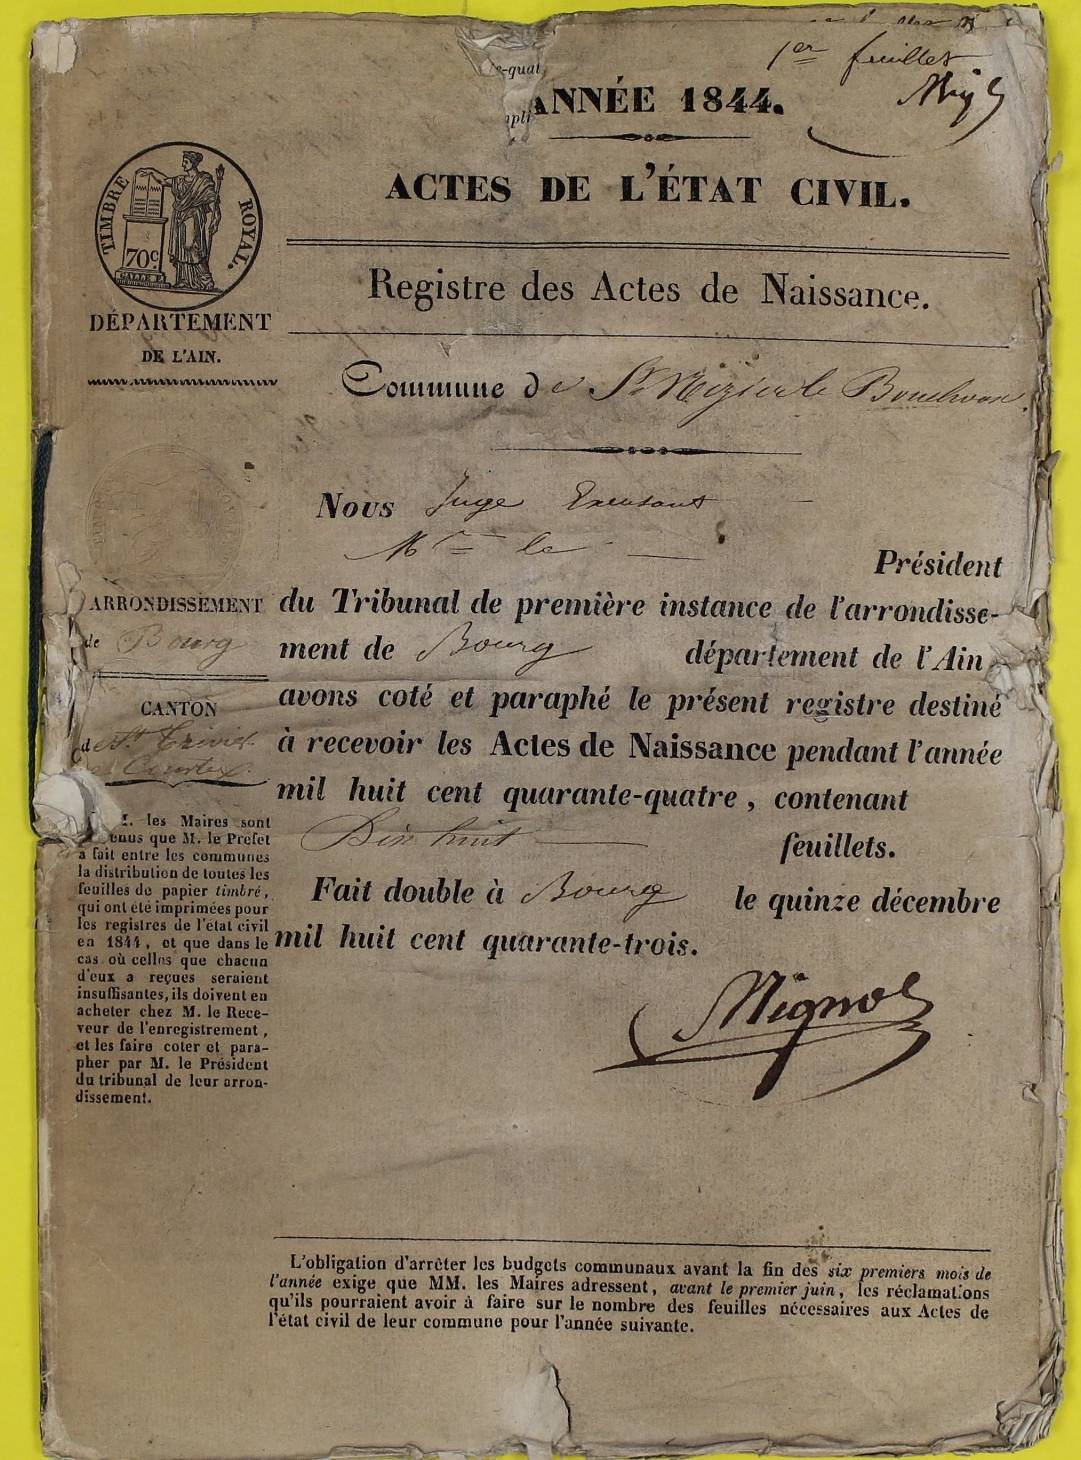 1er feuillet
ANNÉE 1844.
ACTES DE L'ÉTAT CIVIL.
TIMBRE ROYAL.
70c.
DÉPARTEMENT
DE L'AIN.
Registre des Actes de Naissance.
Commune de St Nizier le Bouchoux.
Nous Juge
le
Président
du Tribunal de première instance de l'arrondisse-
ment de Bourg département de l'Ain
avons coté et paraphé le présent registre destiné
à recevoir les Actes de Naissance pendant l'année
mil huit cent quarante-quatre, contenant
Dix huit feuillets.
Fait double à Bourg le quinze décembre
mil huit cent quarante-trois.
Mignot
ARRONDISSEMENT
de Bourg
CANTON
de St Trivier
de Courtes.
les Maires sont
enus que M. le Préfet
a fait entre les communes
la distribution de toutes les
feuilles de papier timbré,
qui ont été imprimées pour
les registres de l'état civil
en 1844, et que dans le
cas où celles que chacun
d'eux a reçues seraient
insuffisantes, ils doivent en
acheter chez M. le Rece-
veur de l'enregistrement,
et les faire coter et para-
pher par M. le Président
du tribunal de leur arron-
dissement.
L'obligation d'arrêter les budgets communaux avant la fin des six premiers mois de
l'année exige que MM. les Maires adressent, avant le premier juin, les réclamations
qu'ils pourraient avoir à faire sur le nombre des feuilles nécessaires aux Actes de
l'état civil de leur commune pour l'année suivante.